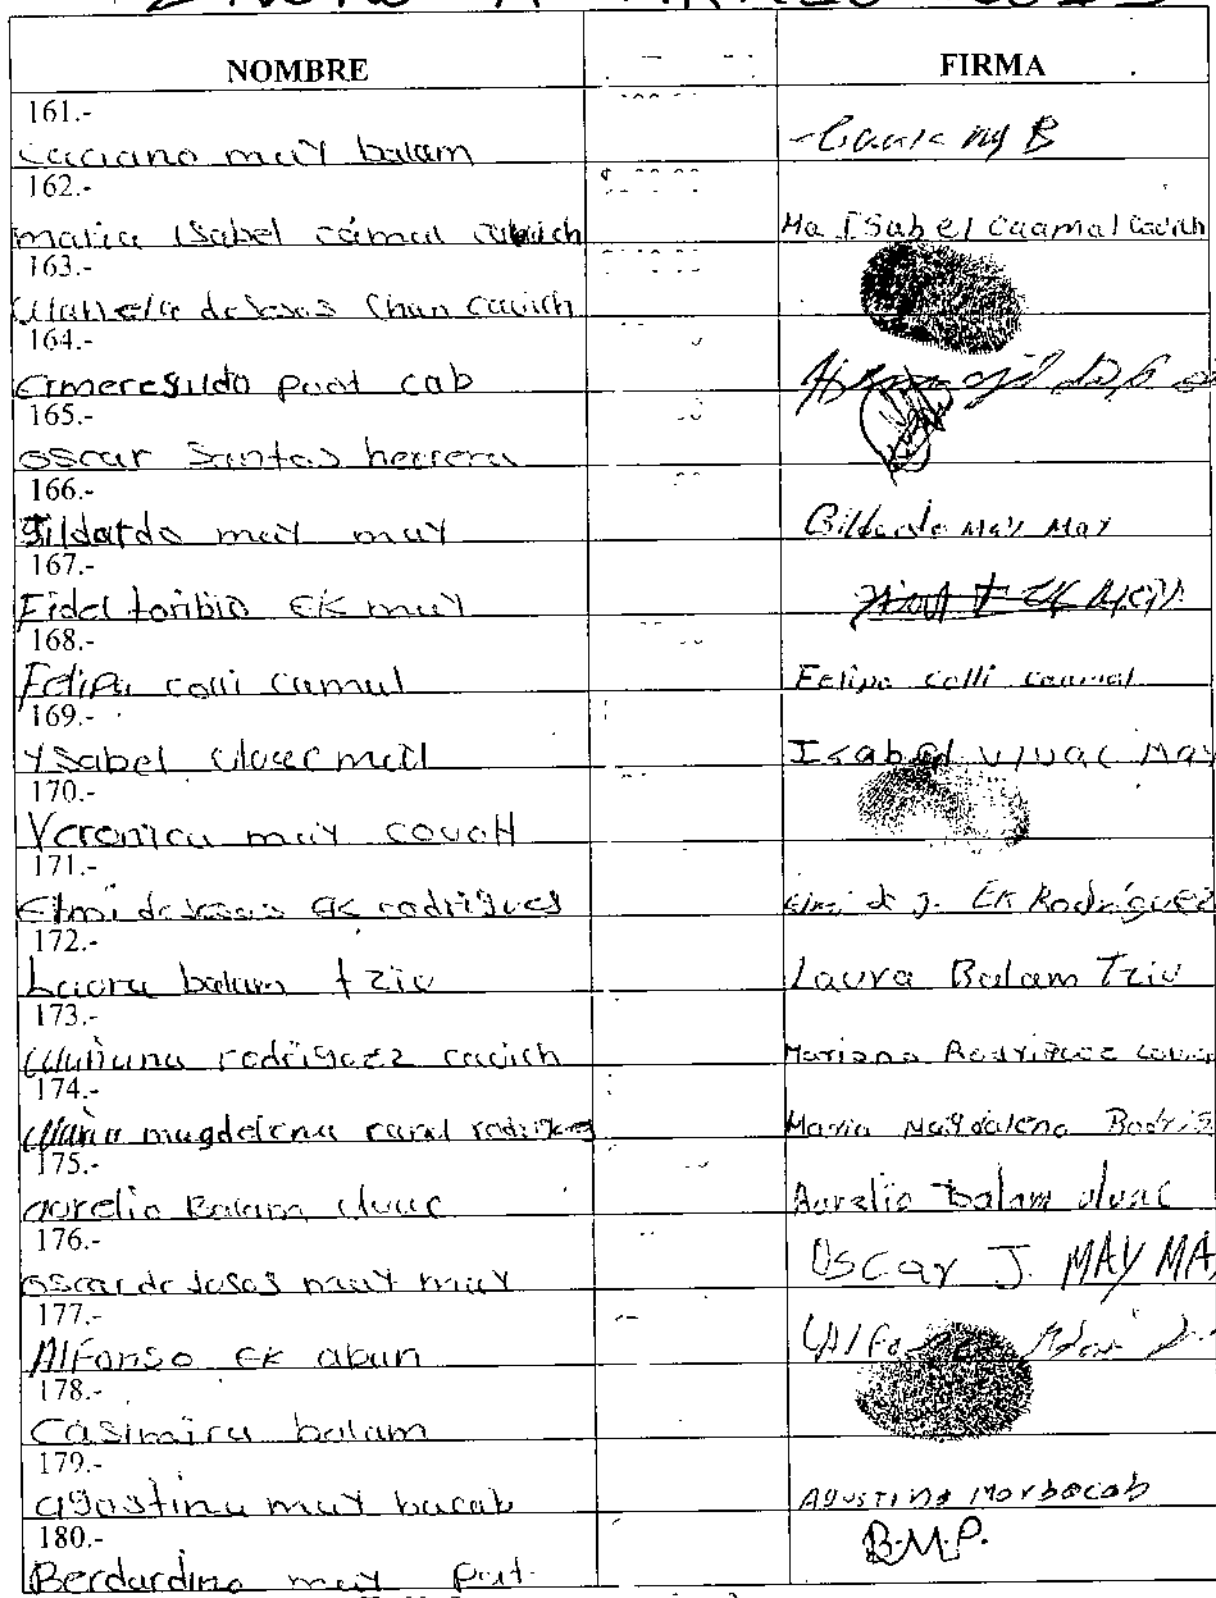 NOMBRE FIRMA
161.-
may balam
162.-
maria isabel cámal cauich Ma Isabel Caamal Cauich
163.-
de Jesus Chan cauich
164.-
Ermeregildo poot cab
165.-
oscar Santos herrera
166.-
Gildardo may may Gildardo May May
167.-
Fidel toribio EK may
168.-
Felipa colli camal Felipa Colli Caamal
169.-
Ysabel uluac may Isabel Uluac May
170.-
Veronica may couoH
171.-
Elmi de Jesus EK rodrigues Elmi de J. EK Rodríguez
172.-
Laura balam tziu Laura Balam Tziu
173.-
Mariana rodriguez cauich Mariana Rodriguez
174.-
Maria magdelena rodrigues Maria Magdalena
175.-
aurelio Balam uluac Aurelio balam uluac
176.-
oscar de Jesus may may Oscar J. MAY MA
177.-
AlFonso EK aban
178.-
Casimira balam
179.-
agostina may bacab Agustina Maybacab
180.- B.M.P.
Berdardino may Poot